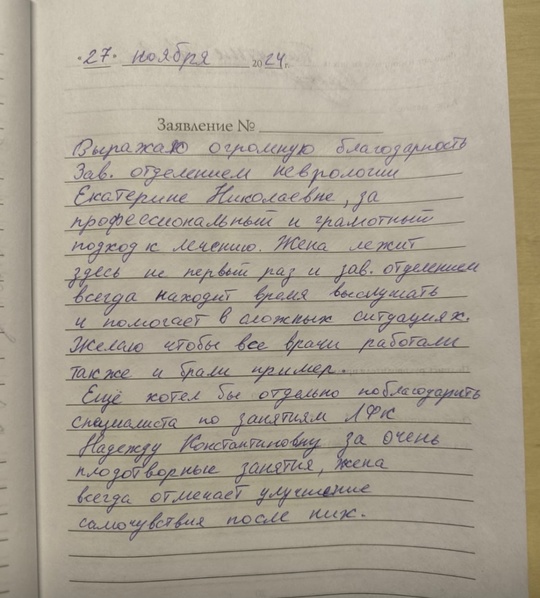 "27" ноября 2024 г.
Заявление №
Выражаю огромную благодарность
Зав. отделением неврологии
Екатерине Николаевне, за
профессиональный и грамотный
подход к лечению. Жена лежит
здесь не первый раз и зав. отделением
всегда находит время выслушать
и помогает в сложных ситуациях.
Желаю чтобы все врачи работали
также и брали пример.
Ещё хотел бы отдельно поблагодарить
специалиста по занятиям ЛФК
Надежду Константиновну за очень
плодотворные занятия, жена
всегда отмечает улучшение
самочувствия после них.